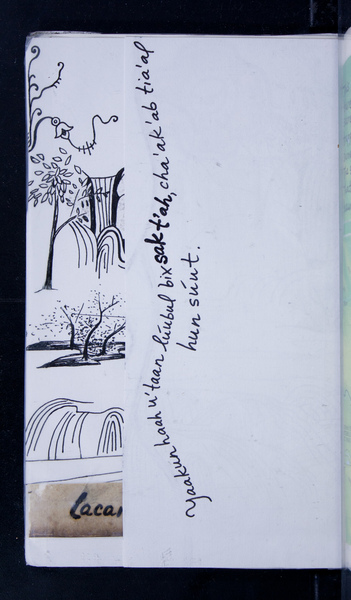 Yaakun haah u'taan lúubul bix sak t'ah, cha'ak'ab tia'al
hun súut.
Lacan